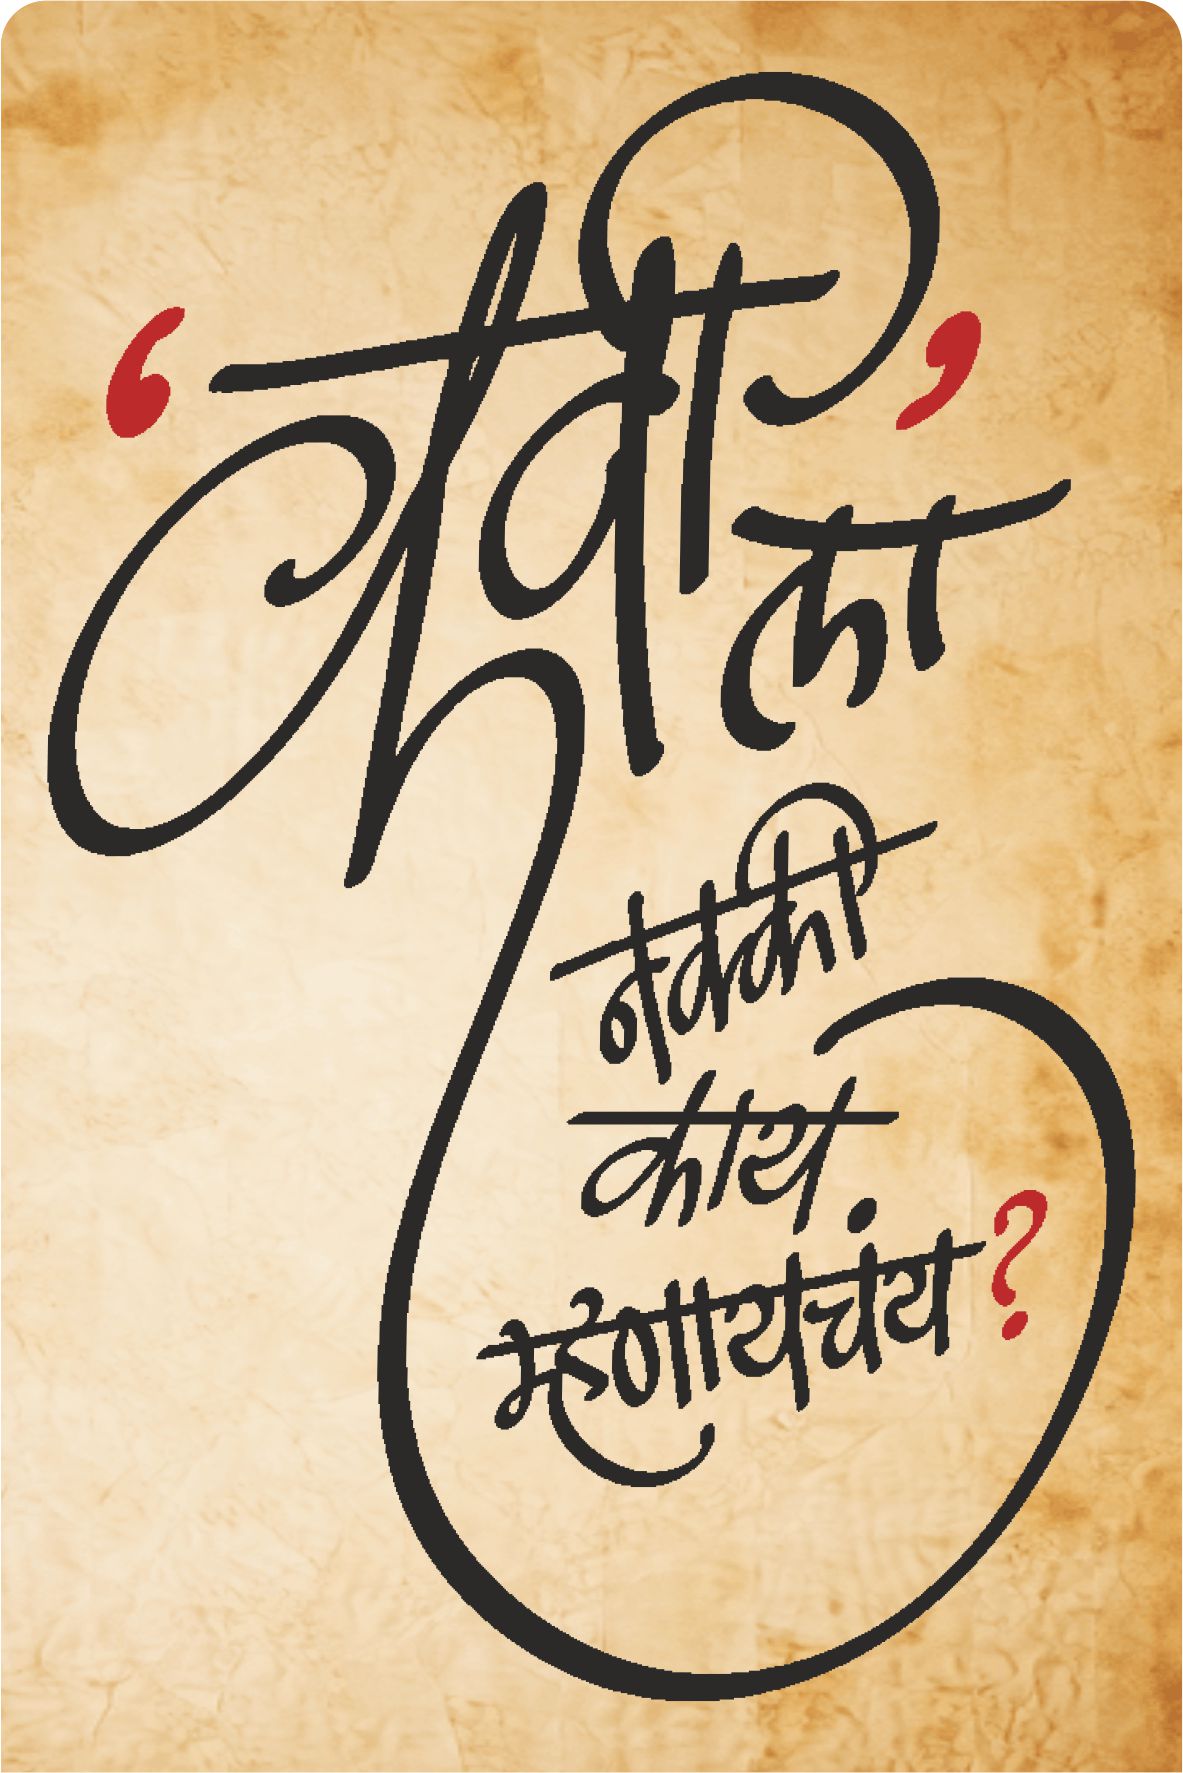 ‘कवी’
ला
नक्की
काय
म्हणायचंय?